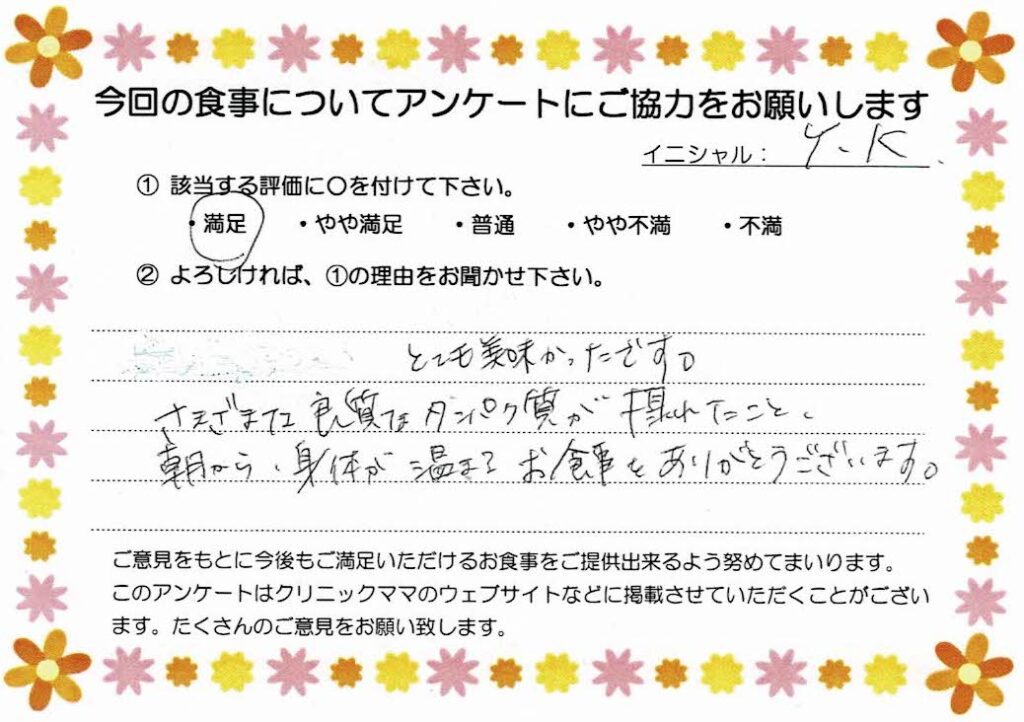 今回の食事についてアンケートにご協力をお願いします
イニシャル： Y.K.
① 該当する評価に〇を付けて下さい。
・満足 ・やや満足 ・普通 ・やや不満 ・不満
② よろしければ、①の理由をお聞かせ下さい。
とても美味かったです。
さまざまな良質なタンパク質が摂れたこと、
朝から、身体が温まるお食事をありがとうございます。
ご意見をもとに今後もご満足いただけるお食事をご提供出来るよう努めてまいります。
このアンケートはクリニックママのウェブサイトなどに掲載させていただくことがござい
ます。たくさんのご意見をお願い致します。